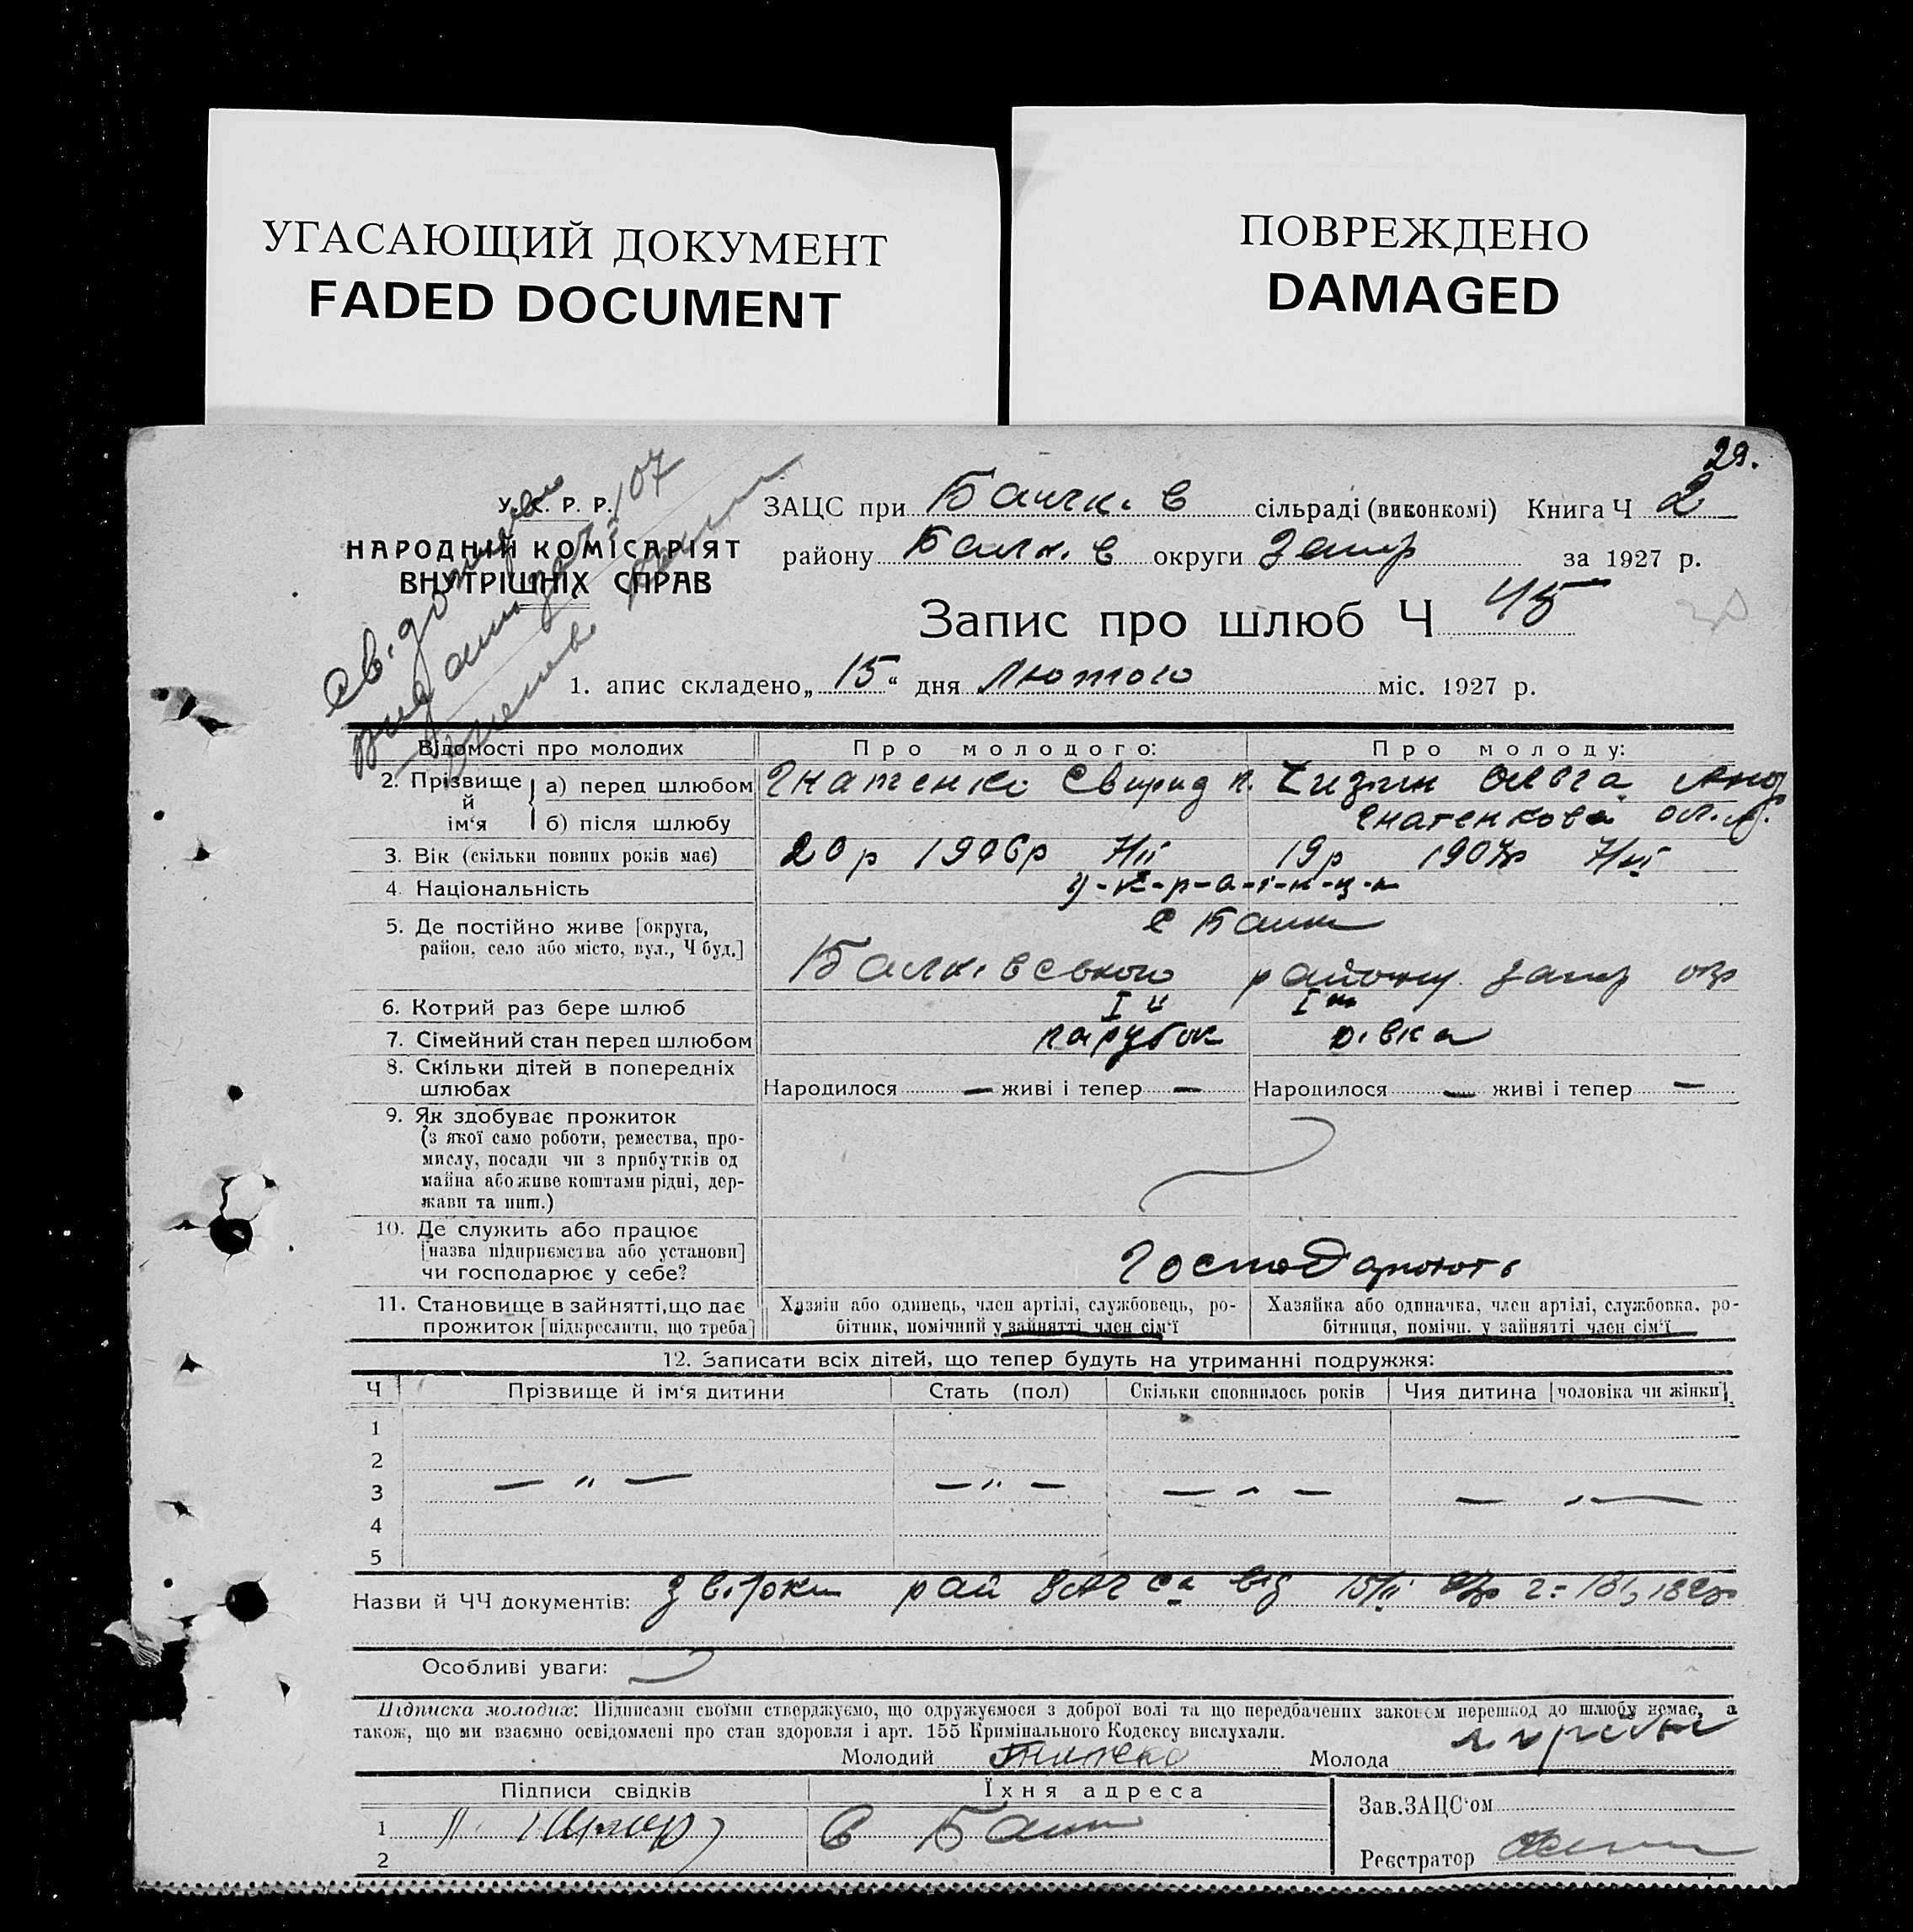 УГАСАЮЩИЙ ДОКУМЕНТ
FADED DOCUMENT
ПОВРЕЖДЕНО
DAMAGED
29.
У.С.Р.Р.
НАРОДНІЙ КОМІСАРІЯТ
ВНУТРІШНІХ СПРАВ
107
ЗАЦС при Балк. в сільраді (виконкомі) Книга Ч 2
району Балк. в округи Запор за 1927 р.
Запис про шлюб Ч 45
1. апис складено „15“ дня Лютого міс. 1927 р.
Відомості про молодих Про молодого: Про молоду:
2. Прізвище й ім‘я
а) перед шлюбом Гнатенко Свирид Ольга Анд
б) після шлюбу Гнатенкова Ол. А.
3. Вік (скільки повних років має) 20 р 1906р 7/II 19р 1907р
4. Національність у-к-р-а-ї-н-ц-и
5. Де постійно живе [округа, с Балки
район, село або місто, вул., Ч буд.] Балківського району Запор окр
6. Котрий раз бере шлюб І й І ша
7. Сімейний стан перед шлюбом парубок дівка
8. Скільки дітей в попередніх
шлюбах Народилося — живі і тепер — Народилося — живі і тепер —
9. Як здобуває прожиток
(з якої само роботи, ремества, про-
мислу, посади чи з прибутків од
майна або живе коштами рідні, дер-
жави та инш.)
10. Де служить або працює
[назва підприємства або установи]
чи господарює у себе? Господарюють
11. Становище в зайнятті, що дає Хазяін або одинець, член артілі, службовець, ро- Хазяйка або одиначка, член артілі, службовка, ро-
прожиток [підкреслити, що треба] бітник, помічний у зайнятті член сім‘ї бітниця, помічн. у зайнятті член сім‘ї
12. Записати всіх дітей, що тепер будуть на утриманні подружжя:
Ч Прізвище й ім‘я дитини Стать (пол) Скільки сповнилось років Чия дитина [чоловіка чи жінки]
1
2
3 — „ — — „ — — „ — — „ —
4
5
Назви й ЧЧ документів: рай ЗАГСа від 15/II
Особливі уваги:
Підписка молодих: Підписами своїми стверджуємо, що одружуємося з доброї волі та що передбачених законом перешкод до шлюбу немає, а
також, що ми взаємно освідомлені про стан здоровля і арт. 155 Кримінального Кодексу вислухали.
Молодий Молода
Підписи свідків Їхня адреса
1 С Балки
2
Зав.ЗАЦС‘ом
Реєстратор